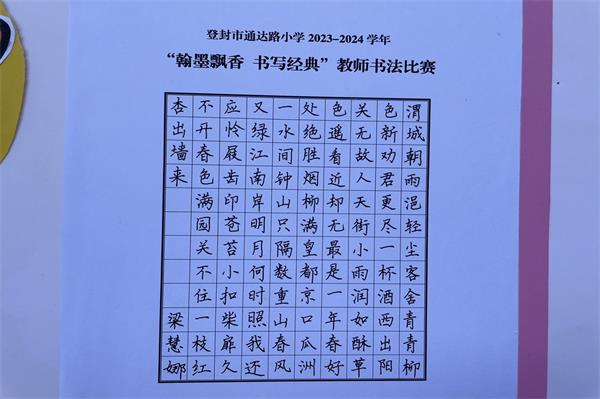 登封市通达路小学 2023-2024 学年
“翰墨飘香 书写经典”教师书法比赛
渭城朝雨浥轻尘客舍青青柳
色新劝君更尽一杯酒西出阳
关无故人天街小雨润如酥草
色遥看近却无最是一年春好
处绝胜烟柳满皇都京口瓜洲
一水间钟山只隔数重山春风
又绿江南岸明月何时照我还
应怜屐齿印苍苔小扣柴扉久
不开春色满园关不住一枝红
杏出墙来 梁慧娜